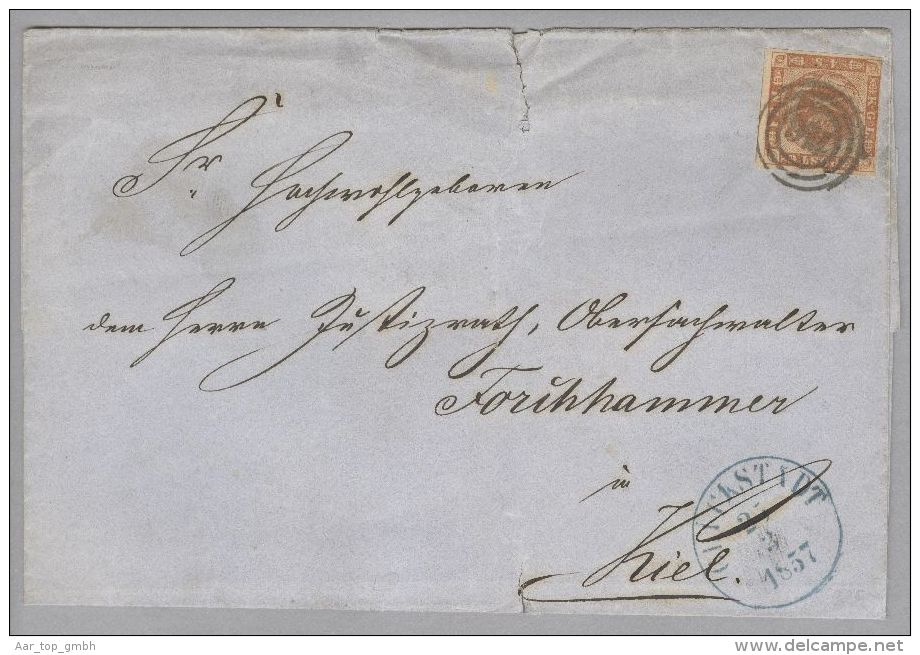 Sr
Hochwohlgeboren
dem Herrn Justizrath, Obersachwalter
Forchhammer
in
Kiel.
GLÜCKSTADT
1857
Aar_top_gmbh
www.delcampe.net